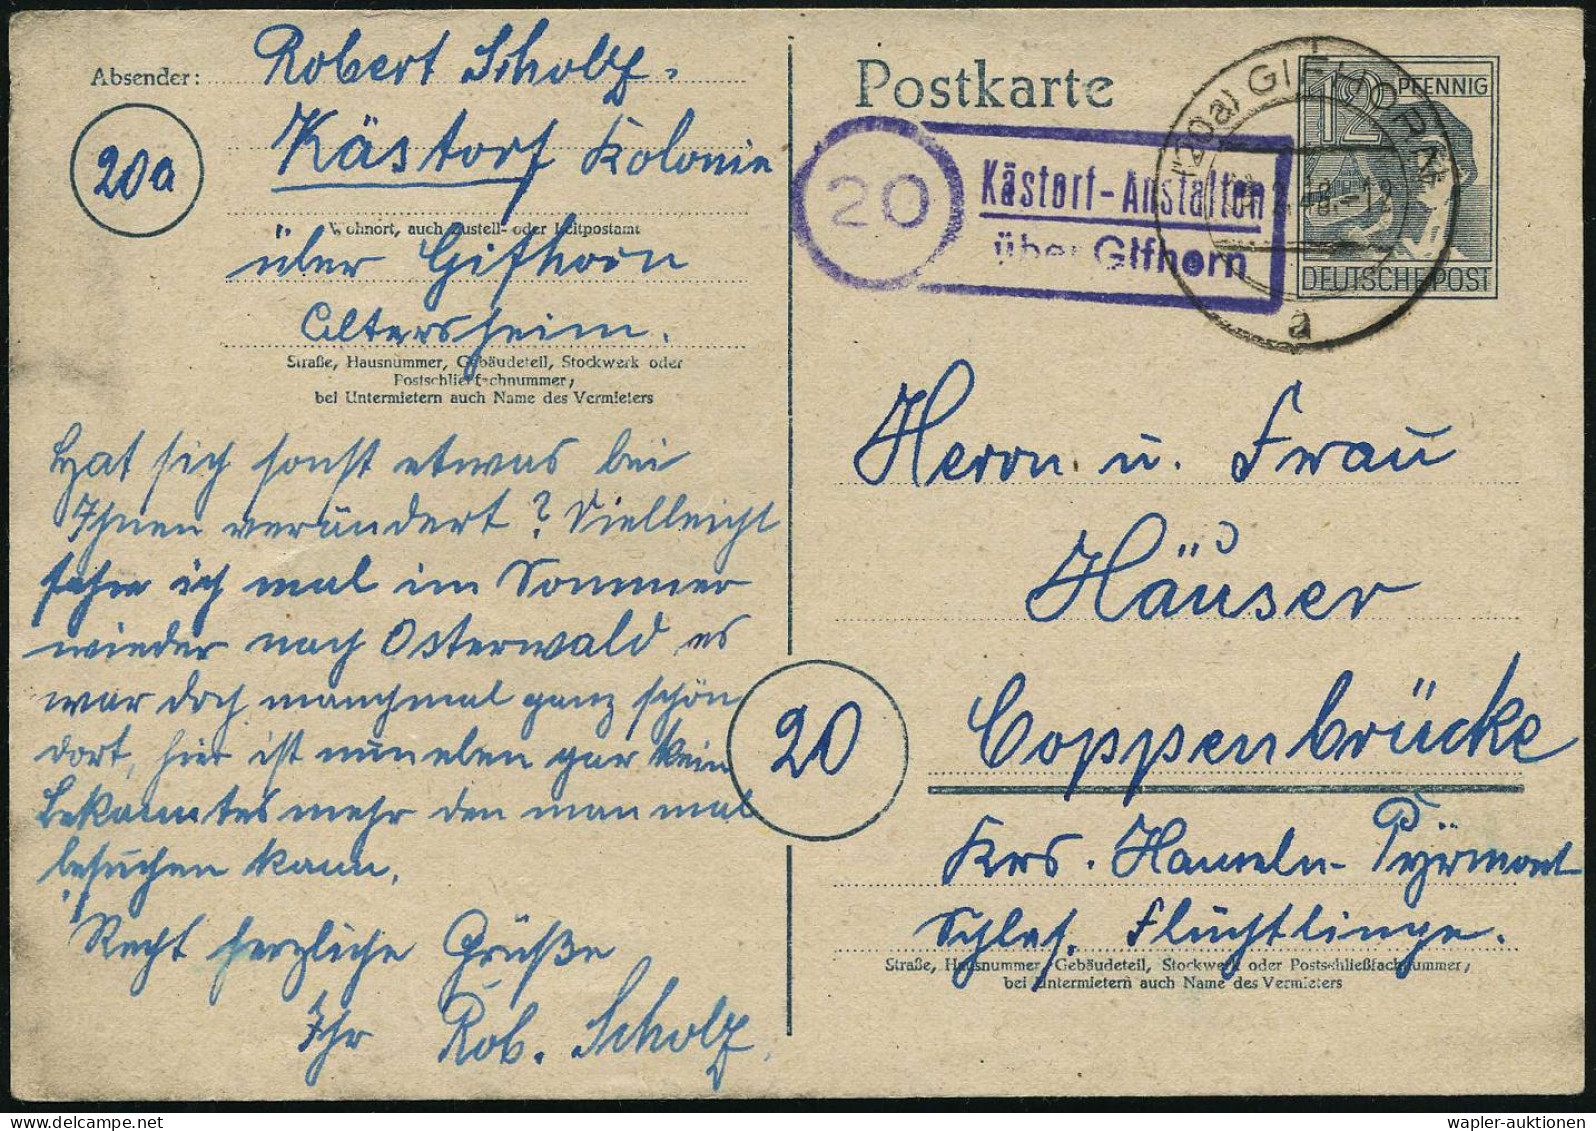 Absender: Robert Scholz.
20a
Kästorf Kolonie
Wohnort, auch Zustell- oder Leitpostamt
über Gifhorn
Altersheim.
Straße, Hausnummer, Gebäudeteil, Stockwerk oder
Postschließfachnummer,
bei Untermietern auch Name des Vermieters
Hat sich sonst etwas bei
Ihnen verändert? Vielleicht
fahre ich mal im Sommer
wieder nach Osterwald es
war doch manchmal ganz schön
dort, hier ist nun eben gar kein
Bekanntes mehr den man mal
besuchen kann.
Recht herzliche Grüße
Ihr Rob. Scholz.
Postkarte
20
Kästorf-Anstalten
über Gifhorn
(20a) GIFHORN
a
12 PFENNIG
DEUTSCHE POST
Herrn u. Frau
Häuser
20
Coppenbrücke
Krs. Hameln-Pyrmont
Schles. Flüchtlinge.
Straße, Hausnummer, Gebäudeteil, Stockwerk oder Postschließfachnummer,
bei Untermietern auch Name des Vermieters
wapler-auktionen